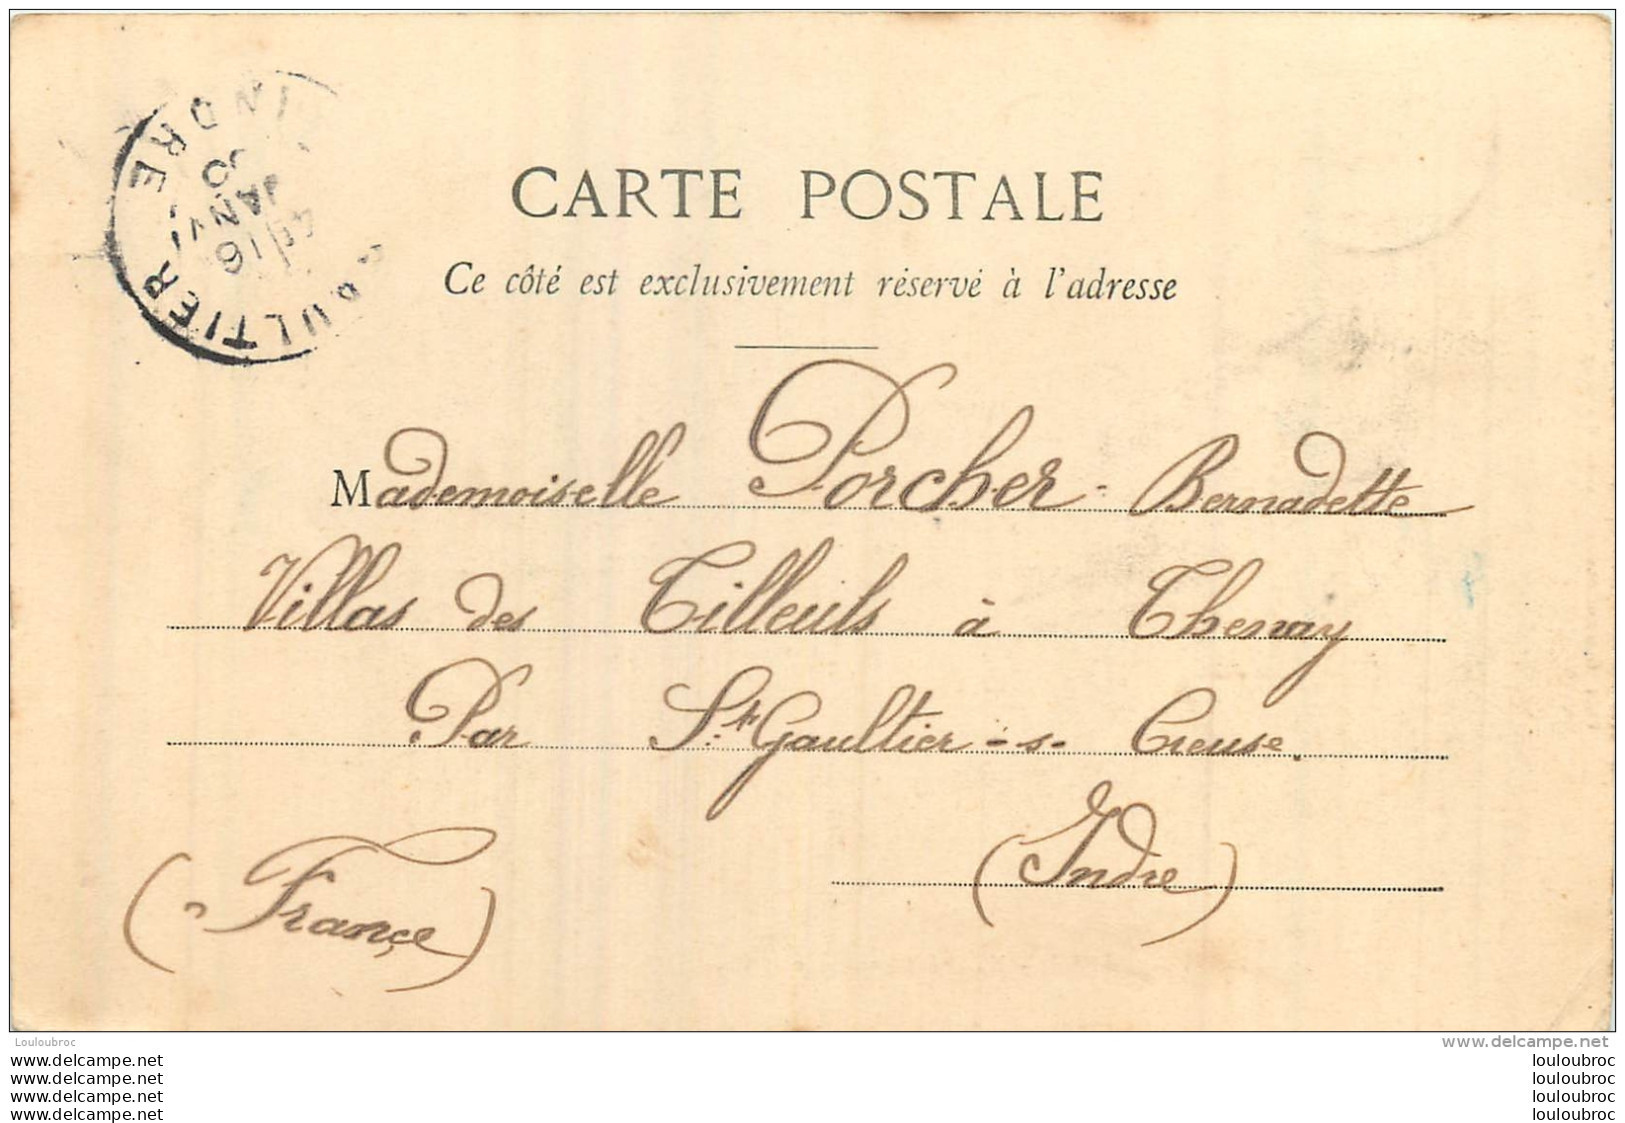 INDRE
JANV
16
CARTE POSTALE
Ce côté est exclusivement réservé à l'adresse
Mademoiselle Porcher - Bernadette
Villas des Tilleuls à Thenay
Par St. Gaultier - s - Creuse.
(Indre)
(France)
Louloubroc
www.delcampe.net
www.delcampe.net
www.delcampe.net
www.delcampe.net
www.delcampe.net
louloubroc
louloubroc
louloubroc
louloubroc